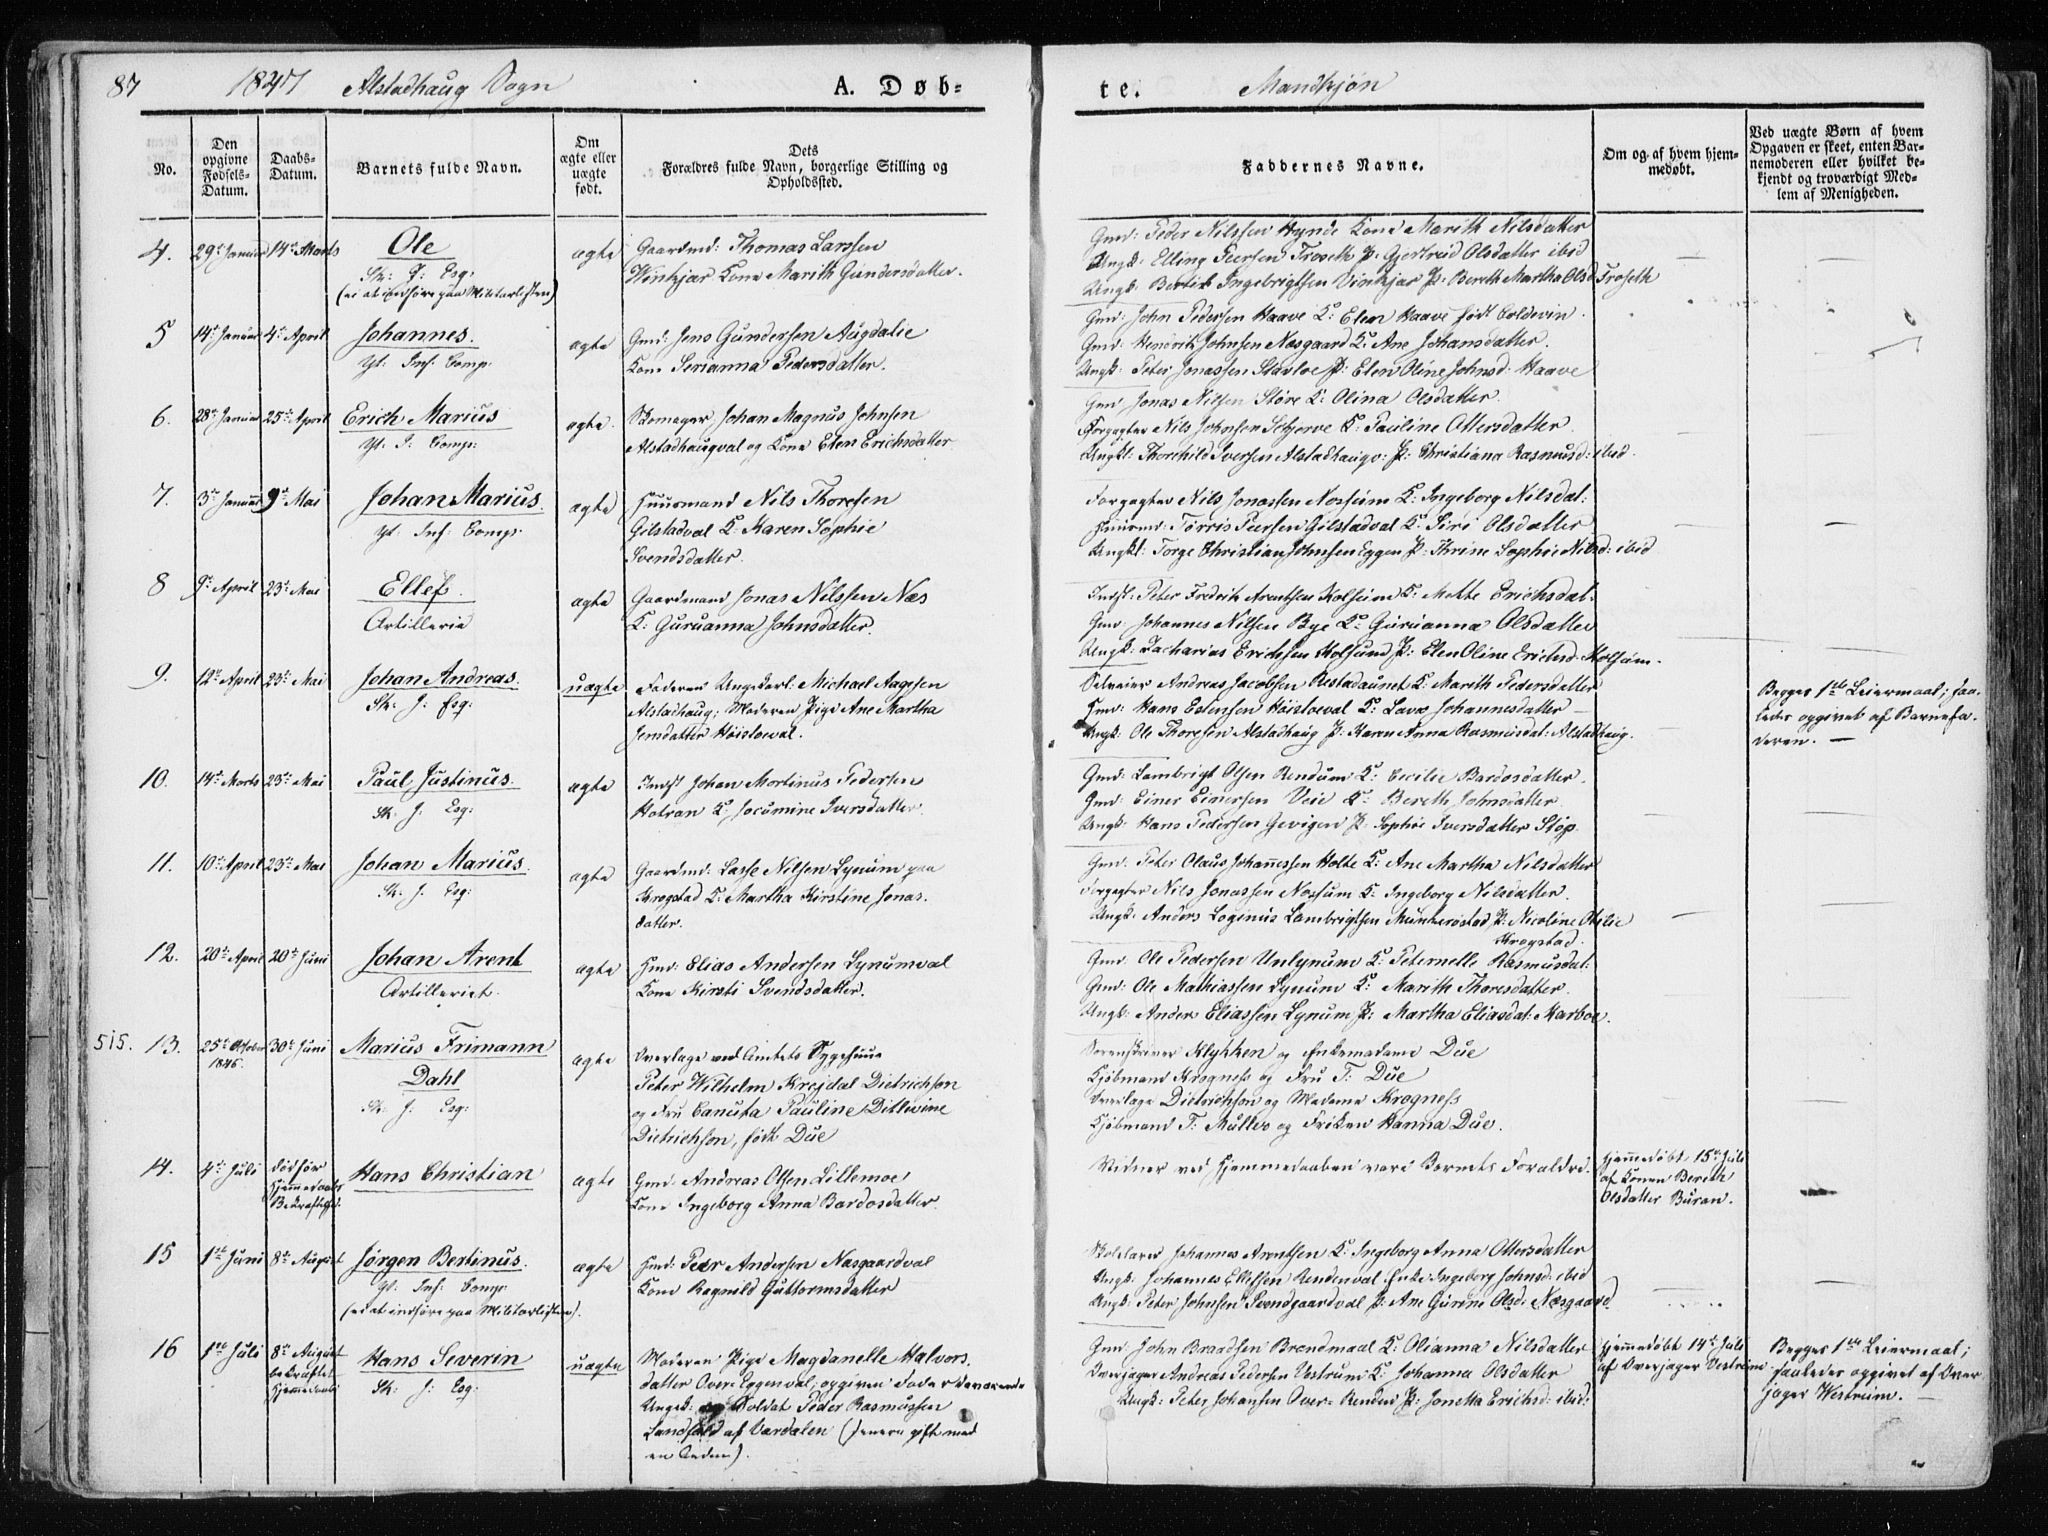 87 1847 Alstadhaug Sogn A. Døb- te. Mandkjøn
No.
Den opgivne Fødsels-Datum.
Daabs-Datum.
Barnets fulde Navn.
Om ægte eller uægte født.
Dets Forældres fulde Navn, borgerlige Stilling og Opholdssted.
Faddernes Navne.
Om og af hvem hjemmedøbt.
Ved uægte Børn af hvem Opgaven er skeet, enten Barnemoderen eller hvilket bekjendt og troværdigt Medlem af Menigheden.
4. 29de Januar 14de Marts Ole
Sk: J: Esq:
(ei at indføre paa Militærlisten)
ægte
Gaardmd: Thomas Larssen
Winkjar Kone Marith Gundersdatter.
Gmd: Peder Nilssen Hynde Kone Marith Nilsdatter
Ungk: Elling Peersen Troseth P: Gjertrud Olsdatter ibid
Ungk: Bertik Ingebrigtsen Vinkjar P: Bereth Martha Olsd Troseth
5 14de Januar 4de April Johannes.
Yt. Inf: Comp.
ægte
Gmd: Jens Gundersen Augdalie
Kone Serianna Pedersdatter.
Gmd: John Pedersen Haave K: Elen Haave født Coldevin.
Gmd: Hendrik Johnsen Næsgaard K: Ane Johansdatter.
Ungk: Peter Jonassen Stavloe P: Elen Oline Johnsd: Haave
6. 28de Januar 25de April Erich Marius
Yt. I: Comp:
ægte.
Skomager Johan Magnus Johnsen
Alstadhaugval og Kone Elen Erichsdatter
Gmd Jonas Nilsen Støre K: Olina Olsdatter.
Forpagter Nils Johnsen Schjerve K: Pauline Ottersdatter.
Ungkl: Thorchild Iversen Alstadhaugv: P: Christiana Rasmusd: ibid.
7. 3de Januar 9de Mai Johan Marius.
Yt. Inf: Comp:
ægte
Huusmand Nils Thoresen
Gilstadval K: Karen Sophie
Svendsdatter.
Forpagter Nils Jonassen Nossum K: Ingeborg Nilsdat:
Huusmd: Torris Peersen Gilstadval K: Siri Olsdatter
Ungkl: Torge Christian Johnsen Eggen P: Thrine Sophie Nilsd: ibid
8 9de April 23de Mai Ellef.
Artilleria
ægte
Gaardmand Jonas Nilssen Næs
K: Guruanna Johnsdatter.
Indst: Peter Fredrik Arentsen Holsum K: Mette Erichsdat:
Gmd Johannes Nilsen Bye K: Guruanna Olsdatter
Ungk: Zacharias Erichsen Holsund P: Elen Oline Erichsd: Holsum.
9. 12te April 23de Mai Johan Andreas.
Sk: J: Esq:
uægte
Faderen Ungekarl: Michael Aagesen
Alstadhaug; Moderen Pige Ane Martha
Jensdatter Høistoeval.
Selveier Andreas Jacobsen Restadaunet K: Marith Pedersdatter
Hmd: Hans Estensen Høistoeval K: Lava Johannesdatter
Ungk: Ole Thoresen Alstadhaug P: Karen Anna Rasmusdat: Alstadhaug.
Begges 1ste Leiermaal; saa-
ledes opgivet af Barnefa-
deren.
10. 14de Marts 23de Mai Paul Justinus.
Sk: J. Esq:
ægte
Indst Johan Mortinus Pedersen
Hotran K: Jocumine Iversdatter.
Gmd: Lambrigt Olsen Rendum K: Cecilie Bardosdatter.
Gmd: Einer Einersen Veie K: Bereth Johnsdatter.
Ungk: Hans Pedersen Gevigen P: Sophie Iversdatter Støp
11. 10de April 23de Mai Johan Marius.
Sk. J. Esq:
ægte
Gaardmd: Lasse Nilsen Lynum paa
Krogstad K: Martha Kirstine Jonas-
datter.
Gmd. Peter Olaus Johannessen Holte K: Ane Martha Nilsdatter
Forpagter Nils Jonassen Nossum K: Ingeborg Nilsdatter.
Ungk. Anders Loginus Lambrigtsen Munkerøstad P: Nicoline Otilie
Krogstad.
12. 20de April 20de Juni Johan Arent
Artilleriet.
ægte
Hmd: Elias Andersen Lynumval
Kone Kirsti Svendsdatter.
Gmd. Ole Pedersen Unlynum K: Peternelle Rasmusdat:
Gmd: Ole Mathiassen Lynum K: Marith Thoresdatter.
Ungk: Anders Eliassen Lynum P: Martha Eliasdat: Marboe.
515. 13. 25de Octobr 1846. 30de Juni Marius Frimann
Dahl
Sk: J: Esq:
ægte
Overlæge ved Amtets Sygehuus
Peter Wilhelm Krejdal Dietrichson
og Fru Canuta Pauline Ditlevine
Dietrichson, født Düe
Sorenskriver Klykken og Enkemadame Düe
Kjøbmand Krogness og Fru T. Düe
Overlæge Dietrichson og Madame Krogness
Kjøbmand T. Müller og Frøken Hanna Düe.
14. 4de Juli Død før
Hjemmedaabs
Bekræftelse.
Hans Christian
ægte
Gmd. Andreas Olsen Lillemoe
Kone Ingeborg Anna Bardosdatter.
Vidner ved Hjemmedaaben vare Barnets Forældre.
Hjemmedøbt 15de Juli
af Konen Bereth
Olsdatter Buran.
15 1ste Juni 8de August Jørgen Bertinus.
Yt. Inf: Comp:
(ei at indføre paa Militærlisten).
ægte
Hmd: Peer Andersen Næsgaardval
Kone Ragnild Guttormsdatter
Skolelærer Johannes Arentsen K: Ingeborg Anna Ottersdatter
Ungk: Johannes Ellefsen Rendenval Enke Ingeborg Johnsd: ibid
Ungk: Peter Johnsen Svendgaardval P: Ane Gurine Olsd: Næsgaard.
16 1ste Juli 8de August
bekræftet
Hjemmedaab
Hans Severin
Sk: J: Esq:
uægte
Moderen Pige Magdanelle Halvors-
datter Over-Eggenval; opgiven Fader daværende
Ungk: Soldat Peder Rasmussen
af Værdalen (senere gift med
en Anden).
Gmd John Baardsen Brandmaal K: Olianna Nilsdatter
Overjager Andreas Pedersen Vestrum K: Johanna Olsdatter
Ungk: Peter Johansen Over-Renden P: Jonetta Erichsd: ibid:
Hjemmedøbt 14de Juli
af Overjager Vestrum
Begges 1ste Leiermaal;
saaledes opgivet af Over
jager Westrum.